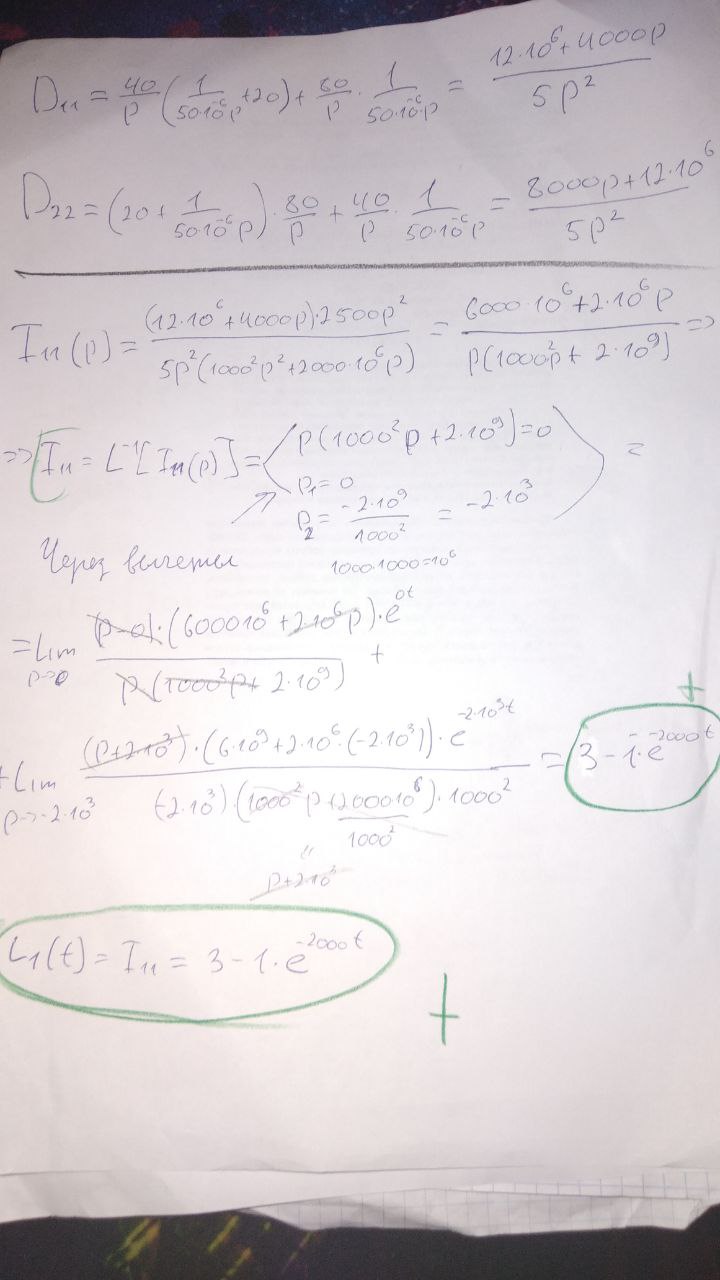 D₁₁ = 40/p (1/(50·10⁻⁶p) + 20) + 80/p · 1/(50·10⁻⁶p) = (12·10⁶ + 4000p)/(5p²)
D₂₂ = (20 + 1/(50·10⁻⁶p)) · 80/p + 40/p · 1/(50·10⁻⁶p) = (8000p + 12·10⁶)/(5p²)
I₁₁(p) = ((12·10⁶ + 4000p)·2500p²)/(5p²(1000²p² + 2000·10⁶p)) = (6000·10⁶ + 2·10⁶p)/(p(1000²p + 2·10⁹)) =>
=> I₁₁ = L⁻¹[I₁₁(p)] = ⟨ p(1000²p + 2·10⁹) = 0 ⟩ =
p₁ = 0
p₂ = (-2·10⁹)/1000² = -2·10³
Через вычеты
1000·1000 = 10⁶
= Lim p→0 ((p-0)·(600010⁶ + 2·10⁶p)·e^(0t))/(p(1000²p + 2·10⁹)) +
+ Lim p→-2·10³ ((p+2·10³)·(6·10⁹ + 2·10⁶·(-2·10³))·e^(-2·10³t))/((-2·10³)·(1000²p + 200010⁶)/1000²·1000²) = 3 - 1·e^(-2000t) +
"
p+2·10³
L₁(t) = I₁₁ = 3 - 1·e^(-2000t)
+